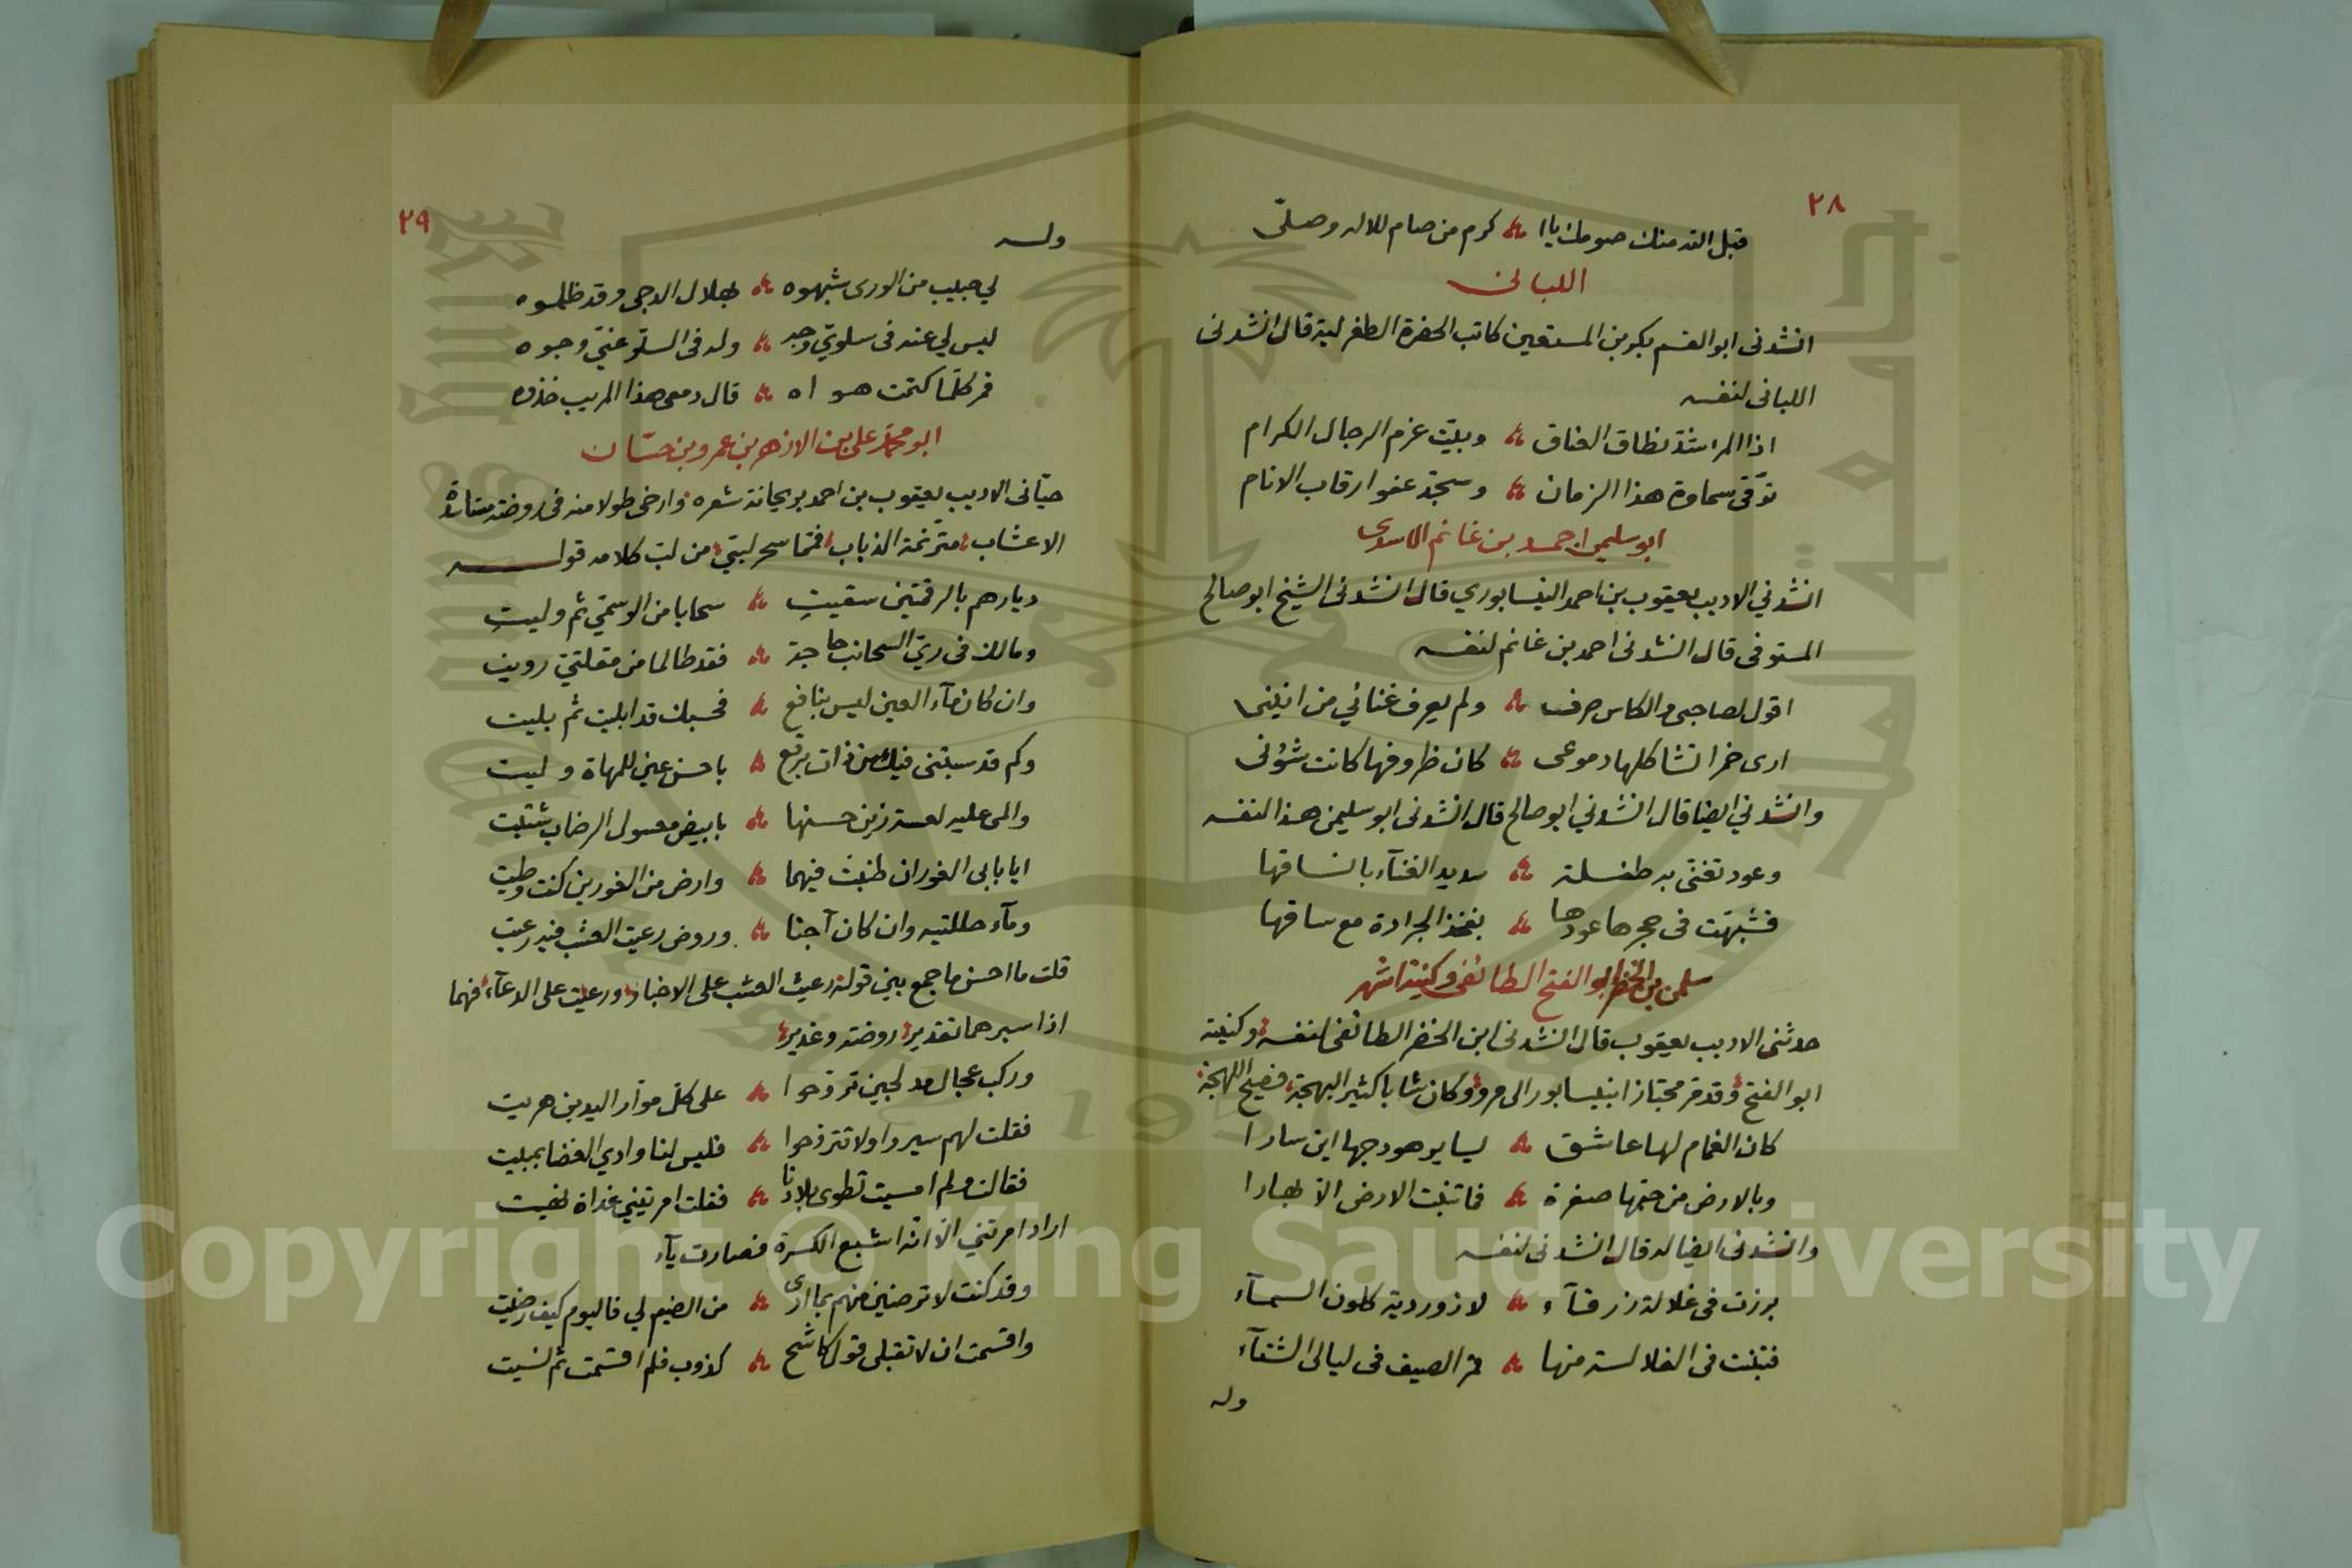 ٢٨
قبل الله منك صومك يا ا ؞ كرم من صام للاله وصلّى
اللبانى
انشدنى ابو القسم بكر بن المستعين كاتب الحضرة الطغرلية قال انشدنى
اللبانى لنفسه
اذا المرء شدّ نطاق العناق ؞ وبيّت عزم الرجال الكرام
توّقى سماوة هذا الزمان ؞ وسجد عفوا رقاب الانام
ابو سليمن احمد بن غانم الاسدى
انشدني الاديب يعقوب بن احمد النيسابوري قال انشدنى الشيخ ابو صالح
المستوفى قال انشدنى احمد بن غانم لنفسه
اقول لصاحبى والكاس صرف ؞ ولم يعرف غنائي من انينى
ارى خمرا تشاكلها دموعى ؞ كان ظروفها كانت شؤنى
وانشدني ايضا قال انشدني ابو صالح قال انشدنى ابو سليمن هذا لنفسه
وعود تغنى به طفلة ؞ سديد الغنآء بانساقها
فشبّهت فى حجرها عودها ؞ بفخذ الجرادة مع ساقها
سليمن بن الخضر ابو الفتح الطائفى وكنيته اشهر
حدثنى الاديب يعقوب قال انشدنى ابن الخضر الطائفى لنفسه وكنيته
ابو الفتح وقد مر مجتازا بنيسابور الى مرو وكان شابا كثير البهجة فصيح اللهجة
كان الغمام لها عاشق ؞ يساير هودجها اين سارا
وبالارض من حبّها صفرة ؞ فما تنبت الارض الا بهارا
وانشدنى ايضا له قال انشدنى لنفسه
برزت فى غلالة زرقآء ؞ لازوردية كلون السمآء
فتبنت فى الغلالة منها ؞ قمر الصيف فى ليالى الشتآء
وله
٢٩
وله
لي حبيب من الورى شبهوه ؞ بهلال الدجى وقد ظلموه
ليس لي عنه فى سلوتي وجه ؞ وله فى السلّو عنّي وجوه
قمر كلّما كتمت هواه ؞ قال دمعى هذا المريب خذوه
ابو محمد على بن الازهر بن عمرو بن حسّان
حيّانى الاديب يعقوب بن احمد بريحانة شعره وارخى طولا منه فى روضة متارّة
الاعشاب مترنمة الذباب فمما سحر لبّي من لب كلامه قوله
ديارهم بالرقمتين سقيتِ ؞ سحابا من الوسميّ ثم وليتِ
ومالك فى ريّ السحائب حاجة ؞ فقد طالما من مقلتيّ رويت
وان كان مآء العين ليس بنافع ؞ فحسبك قد ابليت ثم بليت
وكم قد سبتنى فيك من ذات برقع ؞ باحسن عين للمهاة وليت
والمى عليه لعسة زين حسنها ؞ بابيض معسول الرضاب شتيت
ايا بابى الغوران طنبت فيهما ؞ وارض من الغورين كنت وطيت
ومآء حللتيه وان كان آجنا ؞ وروض رعيت العشب فيه رعيت
قلت ما احسن ما جمع بين قوله رعيت العشب على الاخبار ورعيت على الدعآء فهما
اذا سيرهما تقدير روضة وغدير
وركب عجال مدلجين تروّحوا ؞ على كلّ موّار اليدين هريت
فقلت لهم سيروا ولا تتروّحوا ؞ فليس لنا وادي الغضا بمبيت
فقالت ولم امسيت تطوى بلادنا ؞ فقلت امرتيني غداة نهيت
اراد امرتني الا انه اشبع الكسرة فصارت يآء
وقد كنت لا ترضين منهم بما ارى ؞ من الضيم لي فاليوم كيف رضيت
واقسمت ان لا تقبلى قول كاشح ؞ كذوب فلم اقسمت ثم نسيت
Copyright © King Saud University